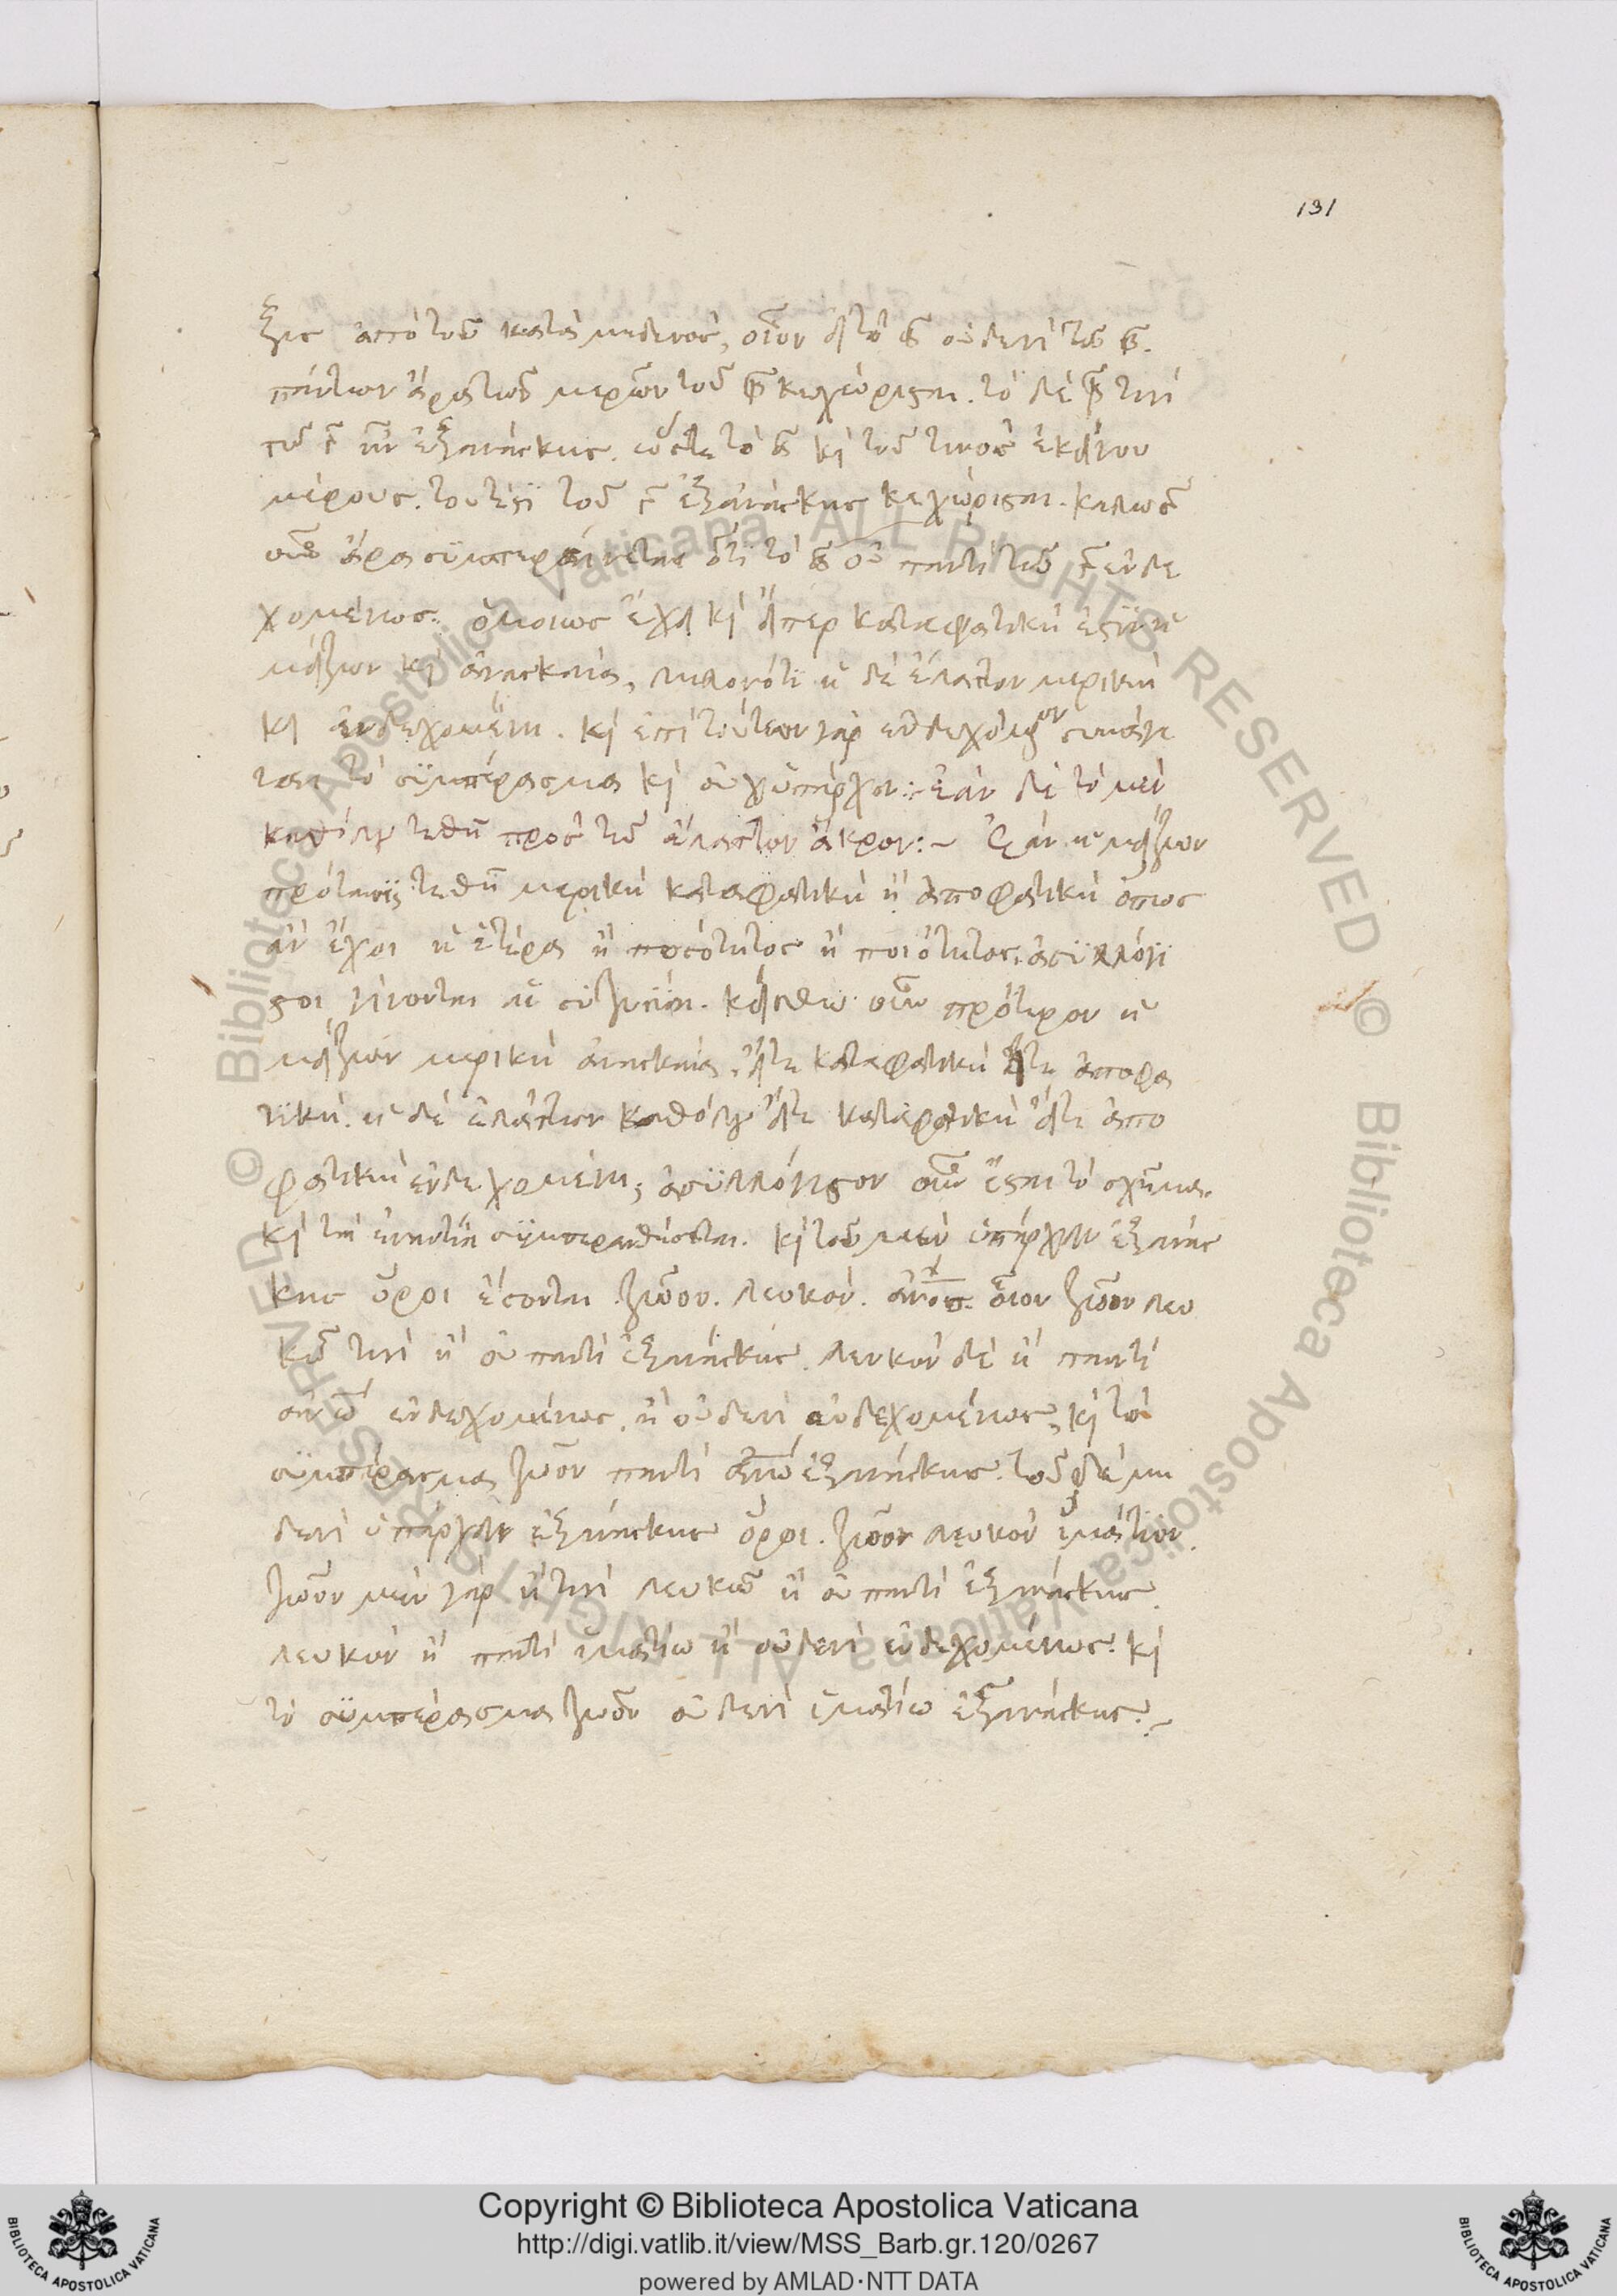 131
ξις ἀπὸ τοῦ κατὰ μηδενός, οἷον εἰ τὸ α οὐδενὶ τῷ β.
πάντων ἄρα τῶν μερῶν τοῦ β κεχώρισται. τὸ δὲ β τινὶ
τῷ γ ἐξανάγκης. ὥστε τὸ α καὶ τοῦ τινὸς ἐκείνου
μέρους. τουτέστι τοῦ γ ἐξανάγκης κεχώρισται. καλῶς
οὖν ἄρα συμπεραίνεται ὅτι τὸ α οὐ παντὶ τῷ γ ἐνδε
χομένως. ὁμοίως ἔχει καὶ εἴπερ καταφατικὴ ἐστὶν ἡ
μείζων καὶ ἀναγκαία, δηλονότι ἡ δὲ ἐλάττων μερικὴ
καὶ ἐνδεχομένη. καὶ ἐπὶ τούτων γὰρ ἐνδεχόμενον συνάγε
ται τὸ συμπέρασμα καὶ οὐχ ὑπάρχον: ἐὰν δὲ τὸ μὲν
καθόλου τεθῇ πρὸς τὸ ἔλαττον ἄκρον:~ Ἐὰν ἡ μείζων
πρότασις τεθῇ μερικὴ καταφατικὴ ἢ ἀποφατικὴ ὅπως
ἂν ἔχοι ἡ ἑτέρα ἢ ποσότητος ἢ ποιότητος, ἀσυλλόγι
στοι γίνονται αἱ συζυγίαι. κείσθω οὖν πρότερον ἡ
μείζων μερικὴ ἀναγκαία, εἴτε καταφατικὴ εἴτε ἀποφα
τική. ἡ δὲ ἐλάττων καθόλου εἴτε καταφατικὴ εἴτε ἀπο
φατικὴ ἐνδεχομένη, ἀσυλλόγιστον οὖν ἔσται τὸ σχῆμα.
καὶ τὰ ἐναντία συμπερανθήσεται. καὶ τοῦ μὲν ὑπάρχειν ἐξανάγ
κης ὅροι ἔσονται ζῷον. λευκόν. ἄνος. οἷον ζῷον λευ
κῷ τινὶ ἢ οὐ παντὶ ἐξανάγκης. λευκὸν δὲ ἢ παντὶ
ἀνω ἐνδεχομένως. ἢ οὐδενὶ ἐνδεχομένως, καὶ τὸ
συμπέρασμα ζῷον παντὶ ἀνω ἐξανάγκης. τοῦ δὲ μη
δενὶ ὑπάρχειν ἐξανάγκης ὅροι. ζῷον λευκὸν ἱμάτιον.
ζῷον μὲν γὰρ ἢ τινὶ λευκῷ ἢ οὐ παντὶ ἐξανάγκης.
λευκὸν ἢ παντὶ ἱματίω ἢ οὐδενὶ ἐνδεχομένως. καὶ
τὸ συμπέρασμα ζῷον οὐδενὶ ἱματίω ἐξανάγκης:~
© Biblioteca Apostolica Vaticana ALL RIGHTS RESERVED
Copyright © Biblioteca Apostolica Vaticana
http://digi.vatlib.it/view/MSS_Barb.gr.120/0267
powered by AMLAD·NTT DATA
BIBLIOTECA APOSTOLICA VATICANA
BIBLIOTECA APOSTOLICA VATICANA